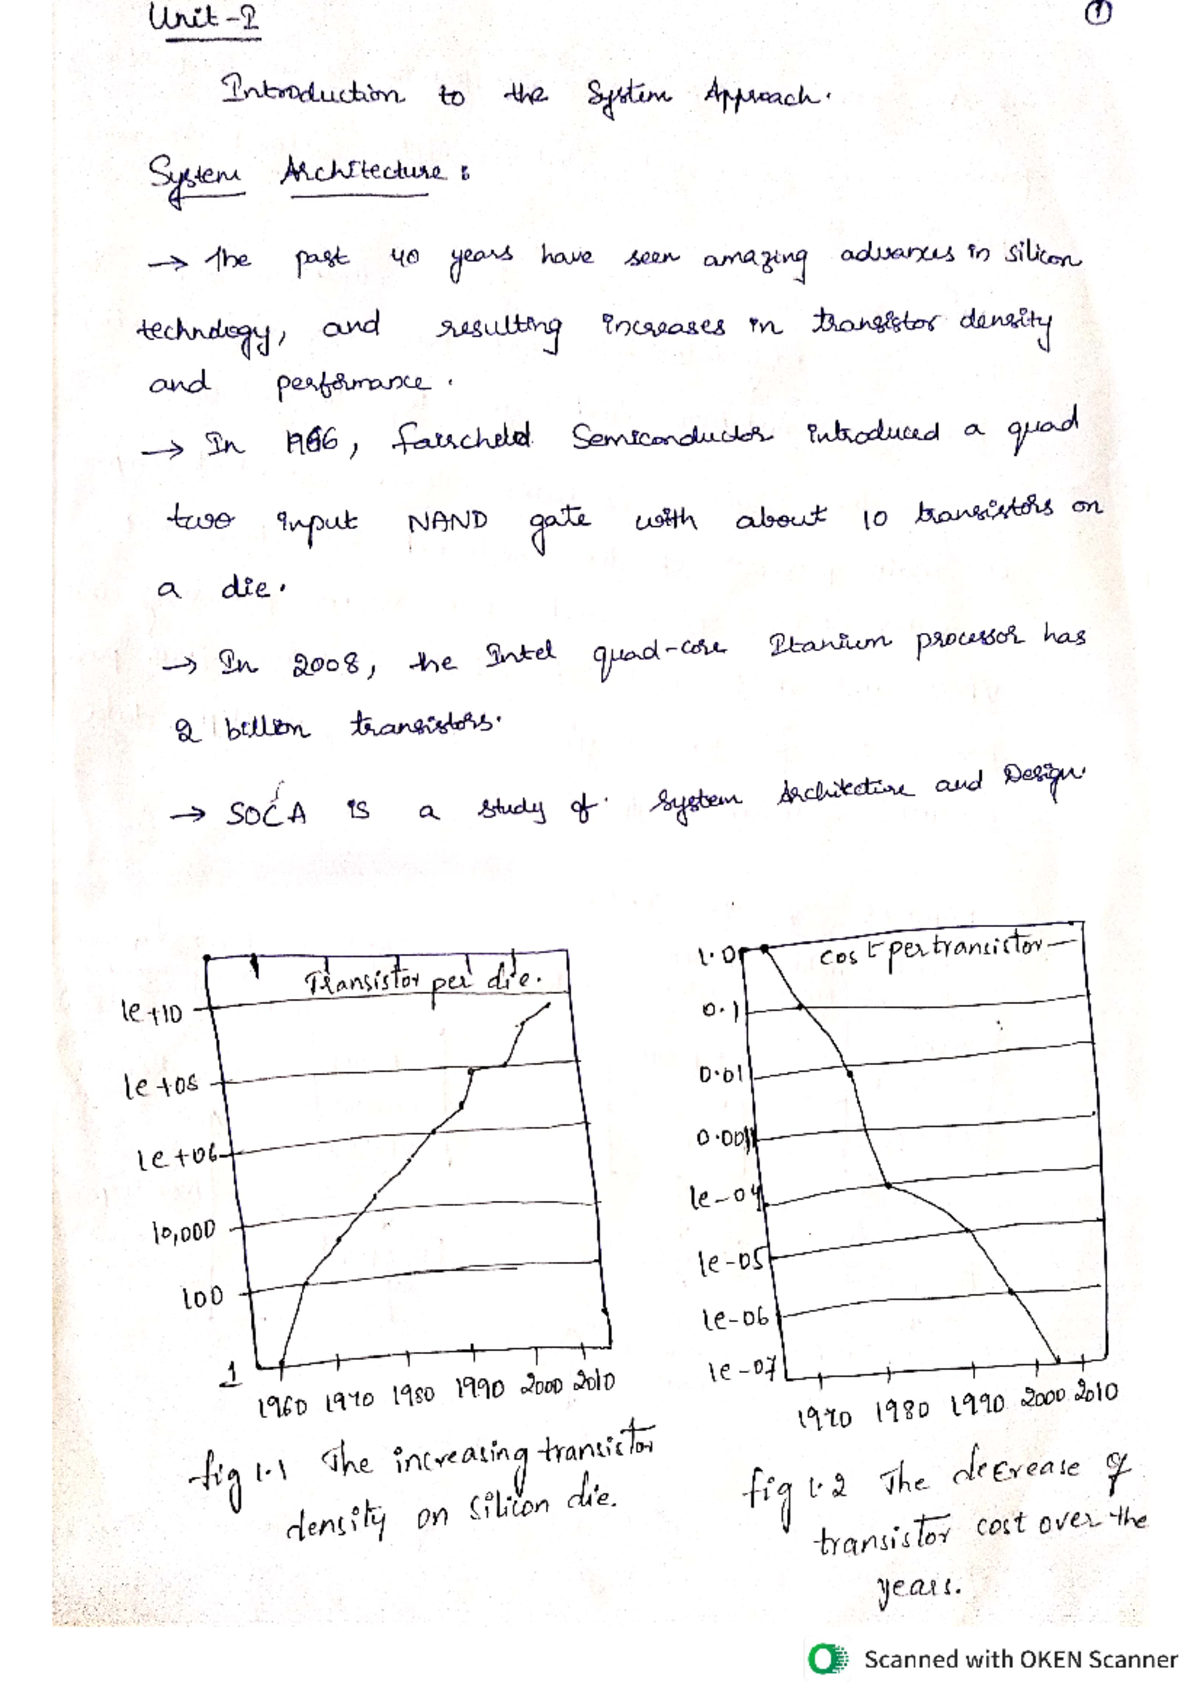 Unit-I
1
Introduction to the System Approach.
System Architecture :
→ The past 40 years have seen amazing advances in silicon
technology, and resulting increases in transistor density
and performance.
→ In 1966, Fairscheld Semiconductor introduced a quad
two input NAND gate with about 10 transistors on
a die.
→ In 2008, the Intel quad-core Itanium processor has
2 billion transistors.
→ SOCA is a study of System Architecture and Design.
Transistor per die.
1e+10
1e+08
1e+06
10,000
100
1
1960 1970 1980 1990 2000 2010
fig 1.1 The increasing transistor
density on Silicon die.
Cost per transistor
1.0
0.1
0.01
0.001
1e-04
1e-05
1e-06
1e-07
1970 1980 1990 2000 2010
fig 1.2 The decrease of
transistor cost over the
years.
Scanned with OKEN Scanner